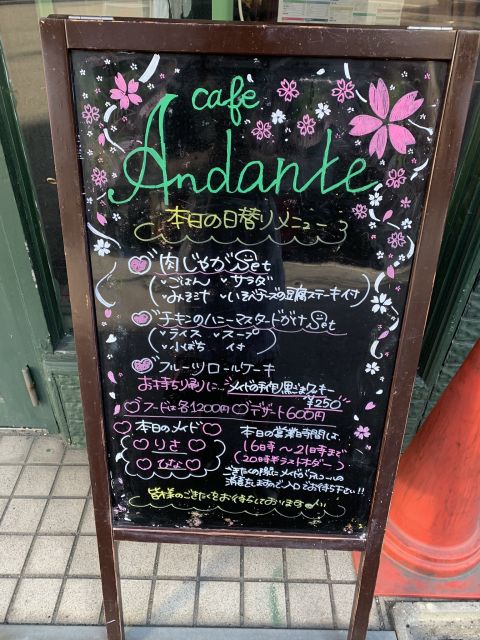 cafe
Andante
本日の日替りメニュー
肉じゃがSet
・ごはん ・サラダ
・みそ汁 ・いそべチーズの豆腐ステーキ付
チキンのハニーマスタードがけSet
・ライス ・スープ
・小ばち 付
フルーツロールケーキ
お持ち帰りに… メイドの手作り黒ごまクッキー
¥250
フードは各1200円 デザート600円
本日のメイド
りさ
ひな
本日の営業時間は、
16時〜21時まで
(20時半ラストオーダー)
ごきたくの際にメイドがアルコールの
消毒をしますので入口でお待ち下さい!!
皆様のごきたくをお待ちしております